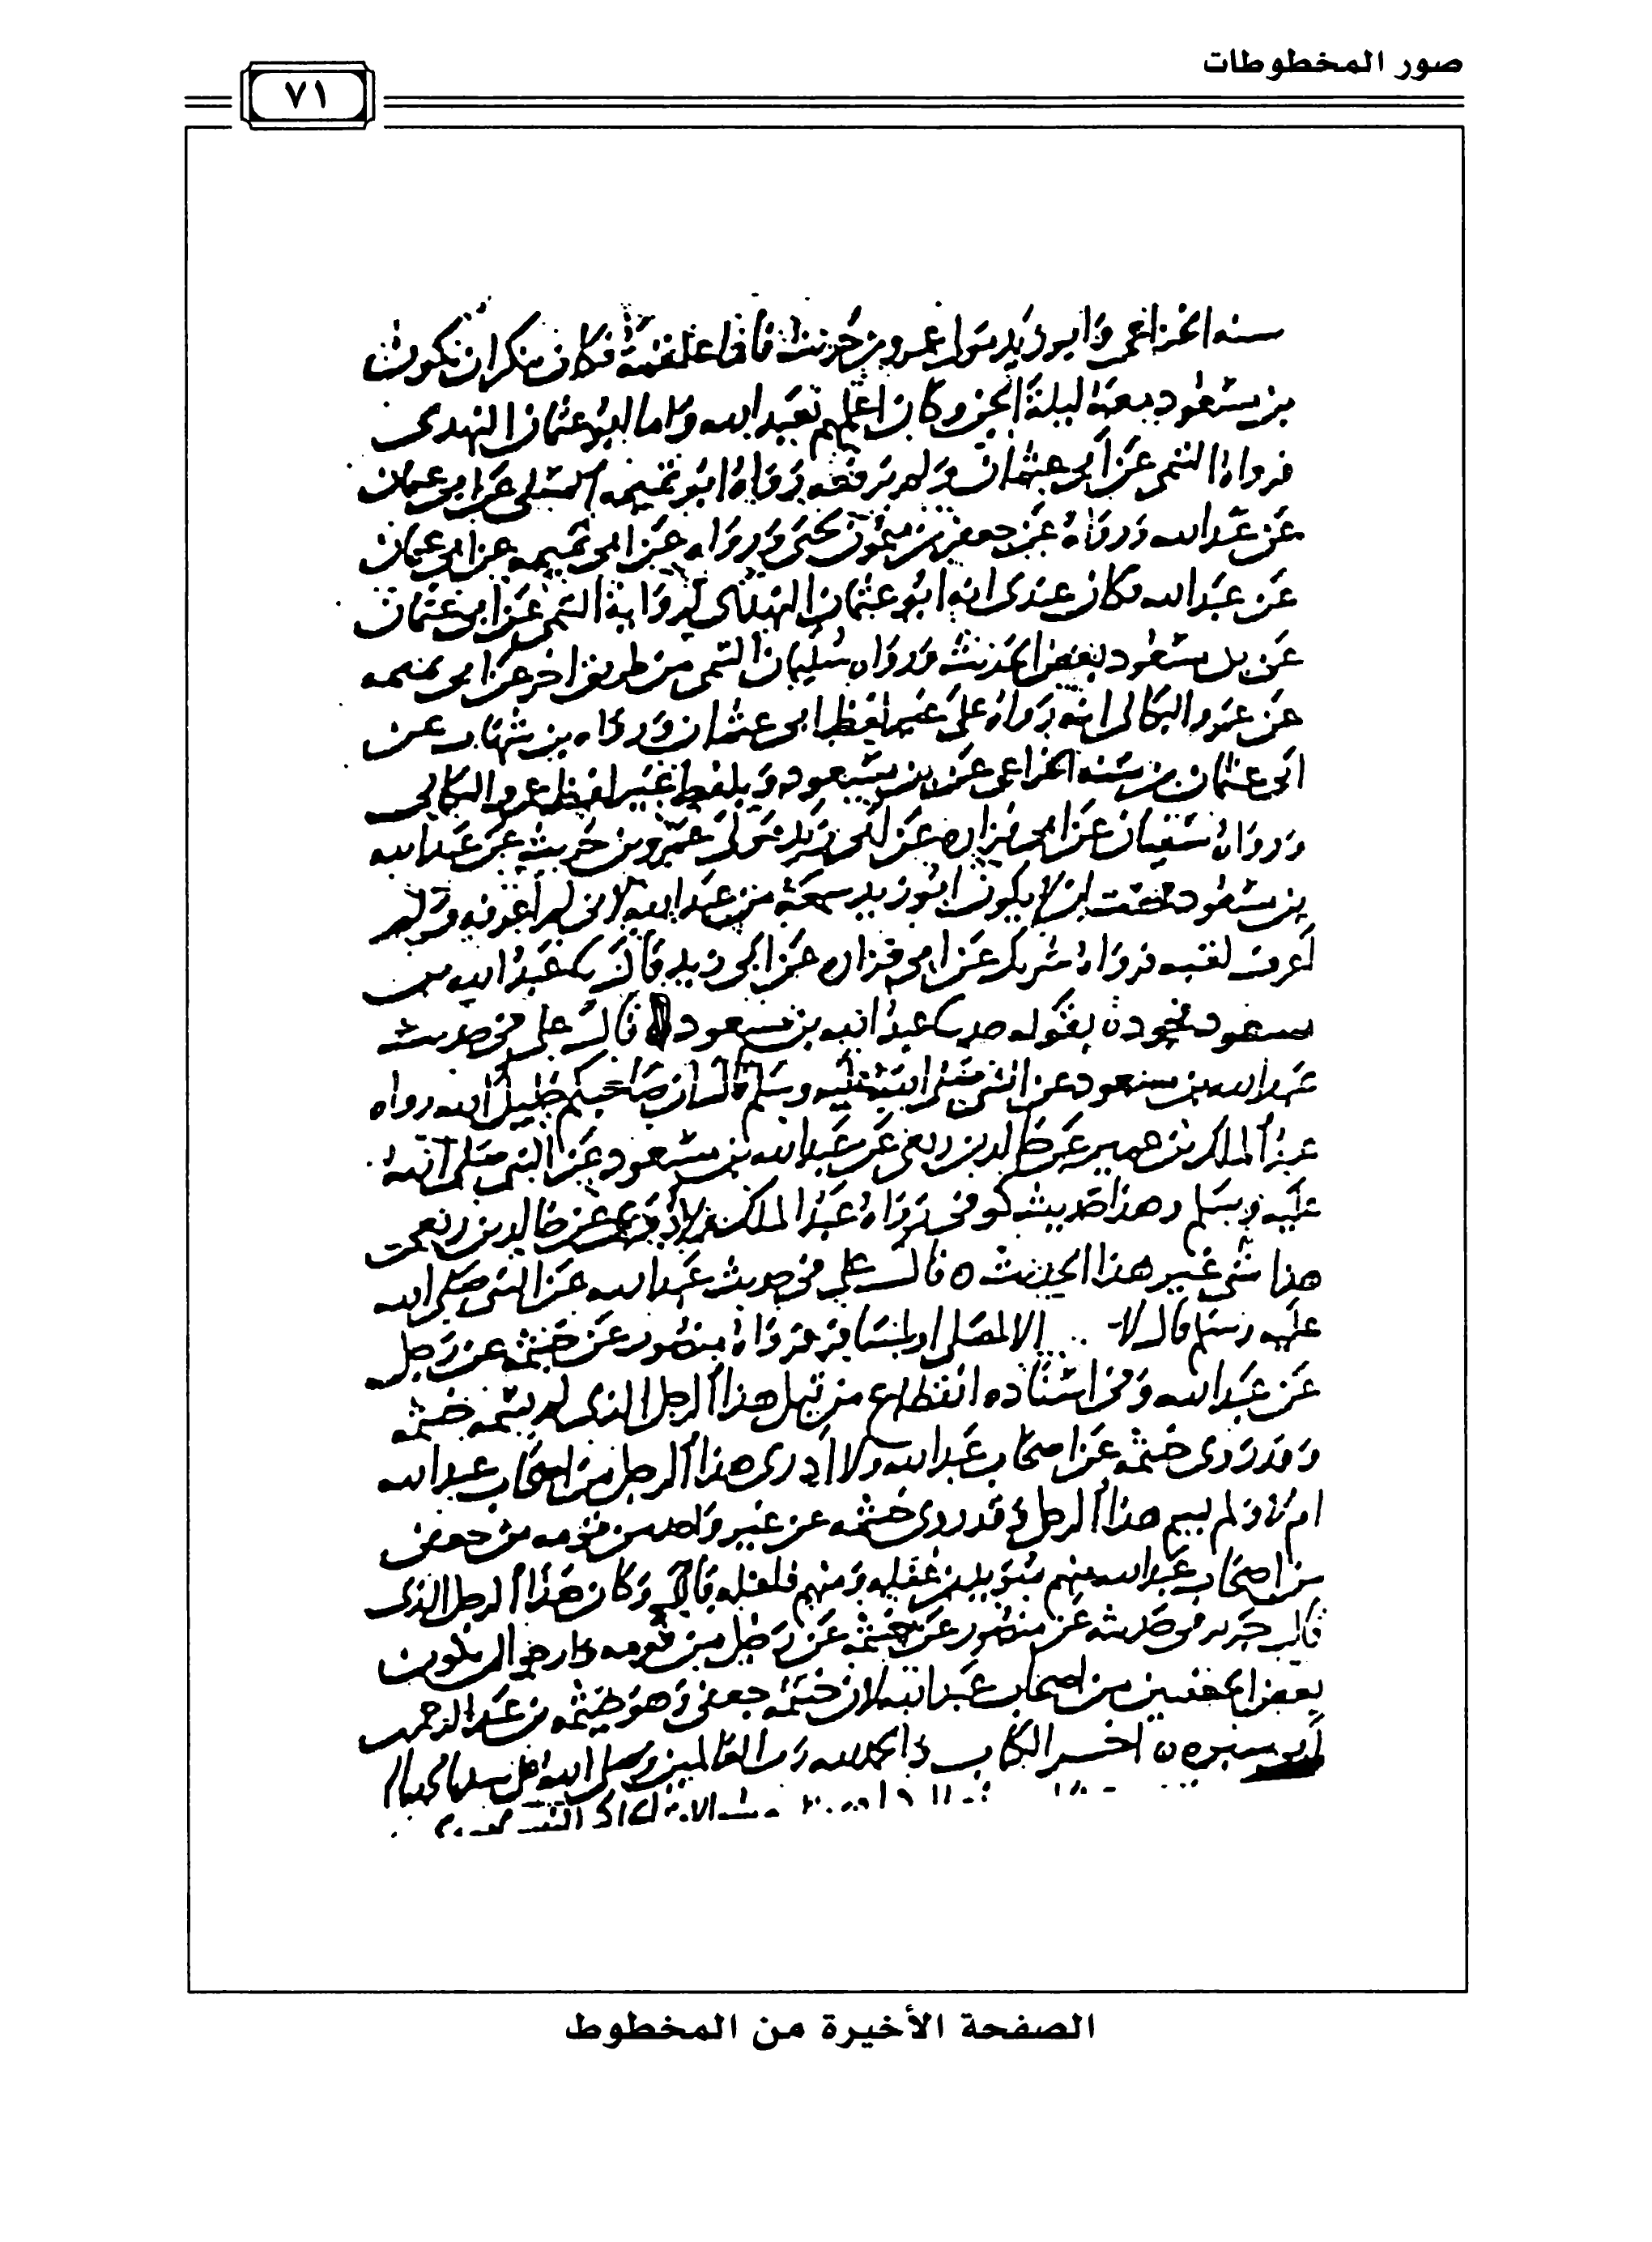 صور المخطوطات
٧١
سنه الخزاعى وابو زيد مولى عمرو بن حريث فاما علقمة فكان ينكر ان يكون
بن مسعود معه ليلة الجن وكان اعلمهم بعبد الله واما ابو عثمان النهدى
فرواه التيمى عن ابى عثمان ولم يرفعه ورواه ابو تميمه عن ابى عثمان
عن عبد الله ورواه عن جعفر بن ميمون يحيى ورواه عن ابى تميمه عن ابى عثمان
عن عبد الله فكان عندى انه ابو عثمان النهدى لرواية التيمى عن ابى عثمان
عن بن مسعود بعض الحديث ورواه سليمان التيمى من طريق اخر عن ابى تميمه
عن عمرو البكالى انه رواه على غير لفظ ابى عثمان ورواه بن شهاب عن
ابى عثمان بن سنه الخزاعى عن بن مسعود وبلفظ غير لفظ عمرو البكالى
ورواه سفيان عن ابى فزاره عن ابى زيد مولى عمرو بن حريث عن عبد الله
بن مسعود فخفت ان لا يكون ابو زيد سمعه من عبد الله لانى لم اعرفه ولم
اعرف لقيه فرواه شريك عن ابى فزاره عن ابى زيد قال عبد الله بن
مسعود فجوده بقوله عبد الله بن مسعود ه قال على فى حديث
عبد الله بن مسعود عن النبى صلى الله عليه وسلم ان صاحبكم خليل الله رواه
عبد الملك بن عمير عن خالد بن ربعى عن عبد الله بن مسعود عن النبى صلى الله
عليه وسلم وهذا حديث كوفى رواه عبد الملك عن خالد بن ربعى
هذا شى غير هذا الحديث ه قال على فى حديث عبد الله عن النبى صلى الله
عليه وسلم قال لا الا لمصلى او لمسافر فرواه منصور عن خيثمه عن رجل
عن عبد الله وفى اسناده انقطاع من قبل هذا الرجل الذى لم يسمه خيثمه
وقد روى خيثمه عن اصحاب عبد الله ولا ادرى هذا الرجل من اصحاب عبد الله
ام لا ولم يسم هذا الرجل وقد روى خيثمه عن غير واحد من قومه من جعفى
من اصحاب عبد الله منهم سويد بن غفله ومنهم وكان هذا الرجل الذى
قال جرير فى حديثه عن منصور عن خيثمه عن رجل من قومه ان يكون
بعض الجعفيين من اصحاب عبد الله لان خيثمه جعفى وهو خيثمه بن عبد الرحمن
بن ابى سبره ه اخر الكتاب والحمد لله رب العالمين وصلى الله على
الصفحة الأخيرة من المخطوط